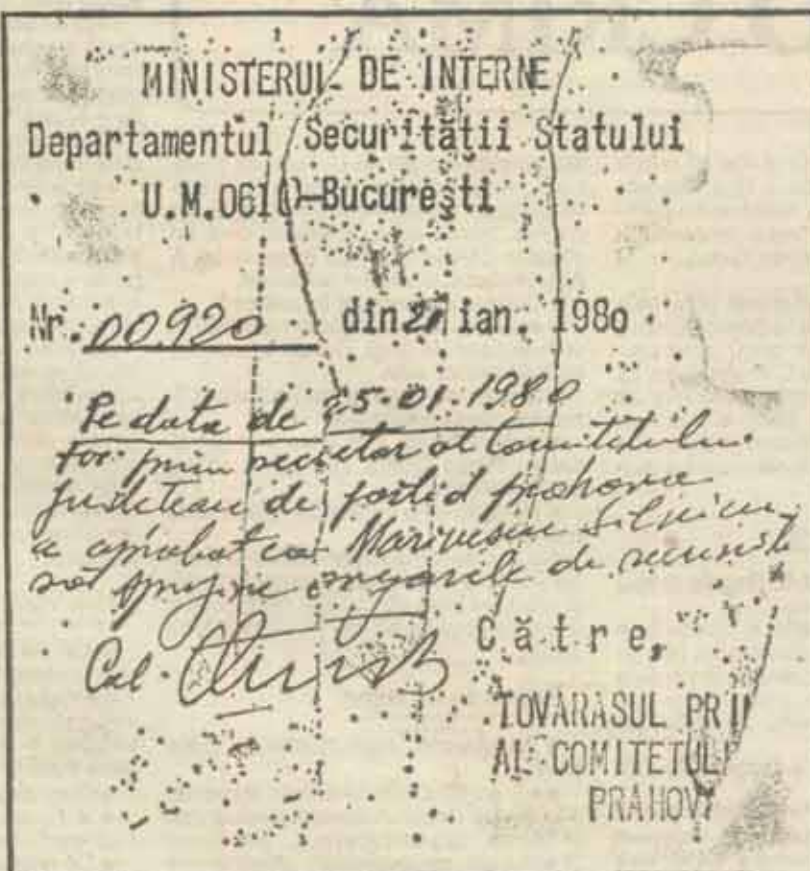 MINISTERUL DE INTERNE
Departamentul Securității Statului
U.M.0610-București
Nr. 00920 din 21 ian. 1980
Pe data de 25.01.1980
tov. prim secretar al Comitetului
Județean de partid Prahova
a aprobat ca Marinescu Silviu
să sprijine organele de securitate
Col.
Către,
TOVARASUL PRI
AL COMITETUL
PRAHOV